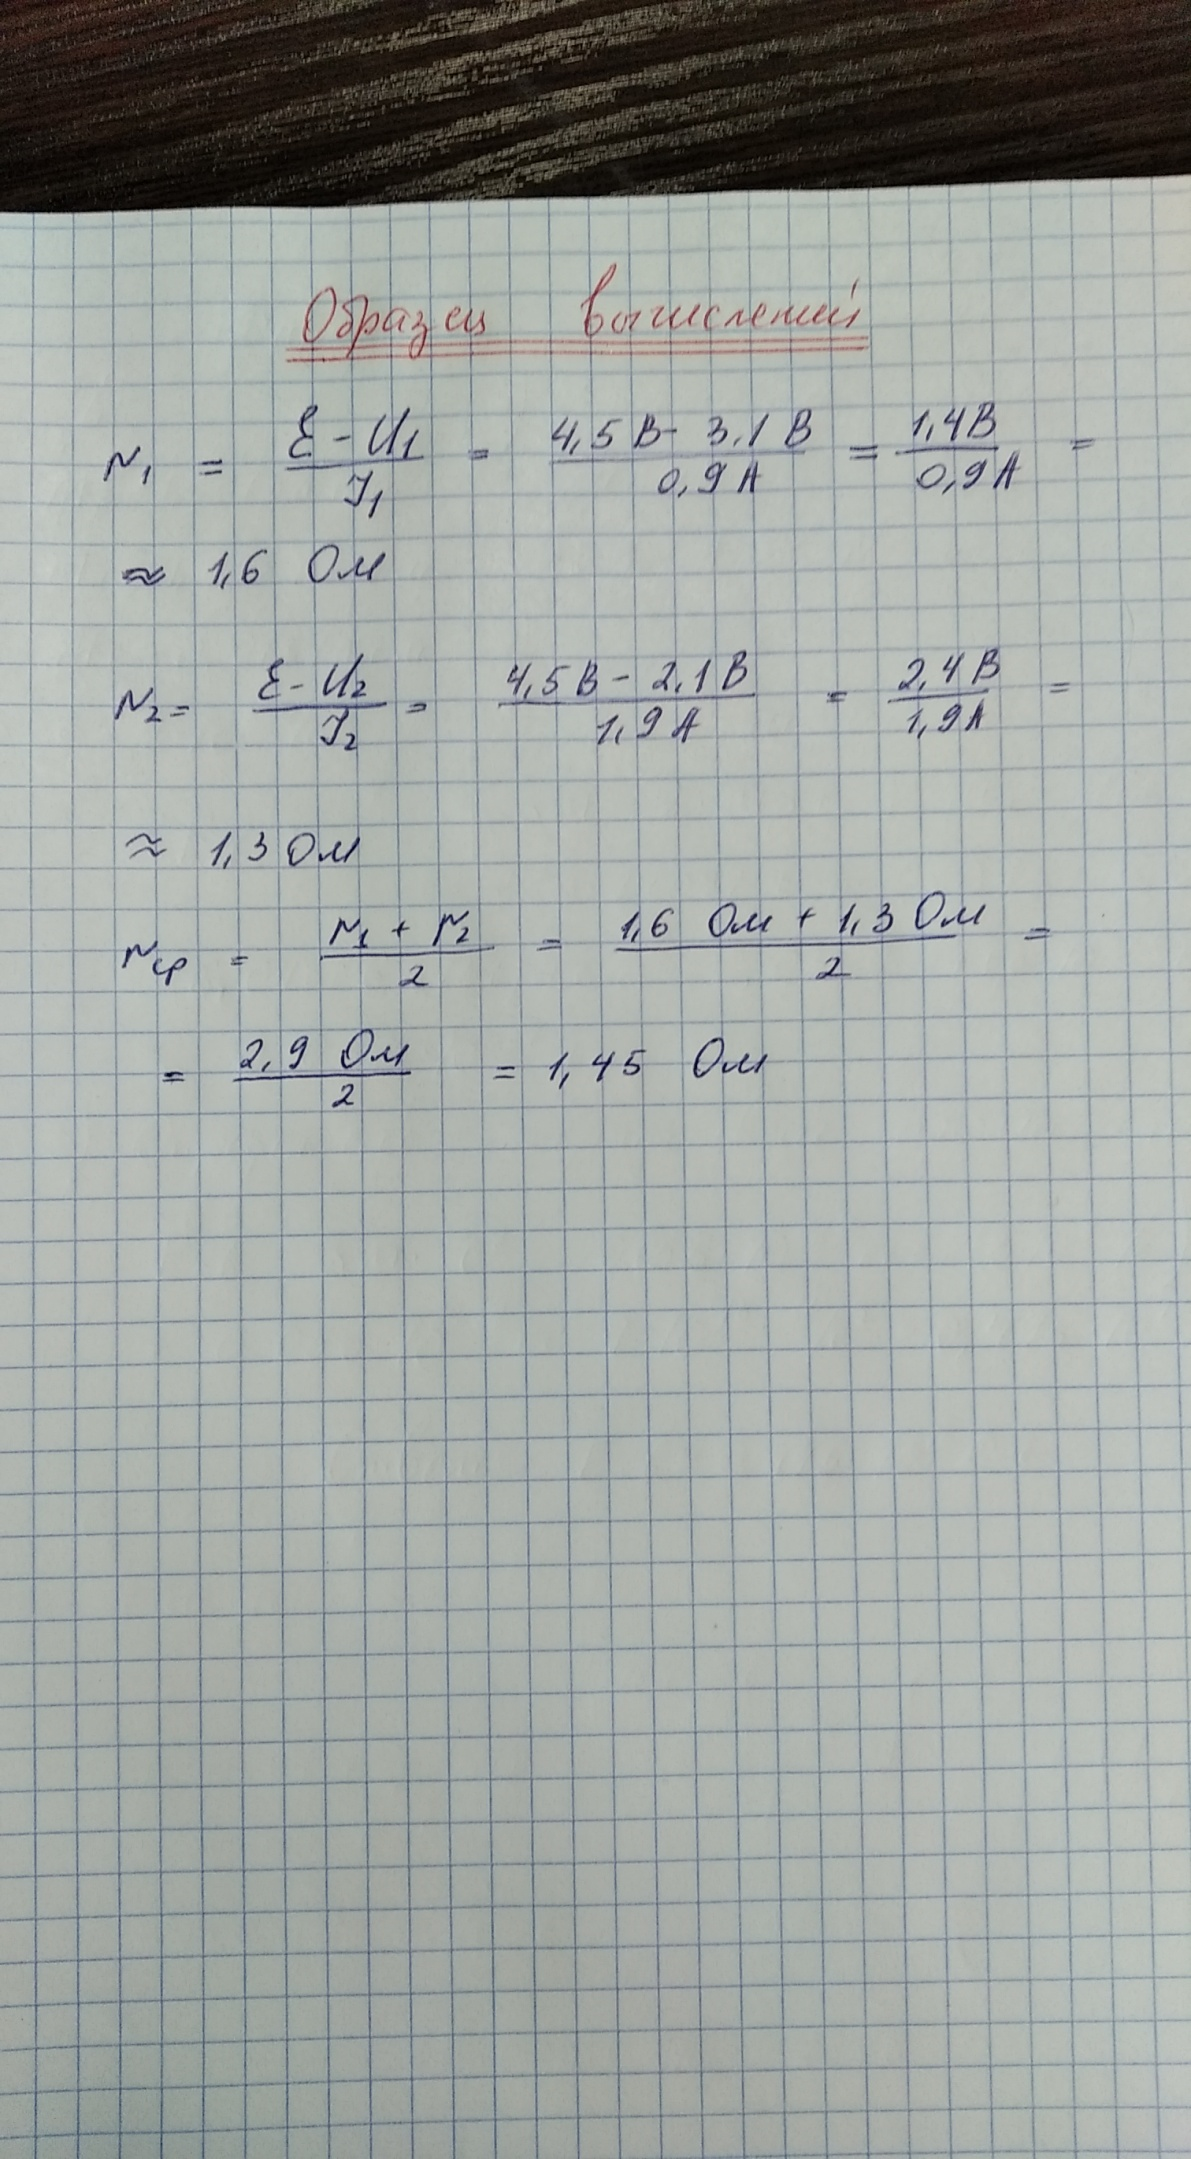 Образец вычислений
r₁ = (ℰ - U₁)/I₁ = (4,5 В - 3,1 В)/(0,9 А) = (1,4 В)/(0,9 А) =
≈ 1,6 Ом
r₂ = (ℰ - U₂)/I₂ = (4,5 В - 2,1 В)/(1,9 А) = (2,4 В)/(1,9 А) =
≈ 1,3 Ом
rср = (r₁ + r₂)/2 = (1,6 Ом + 1,3 Ом)/2 =
= (2,9 Ом)/2 = 1,45 Ом